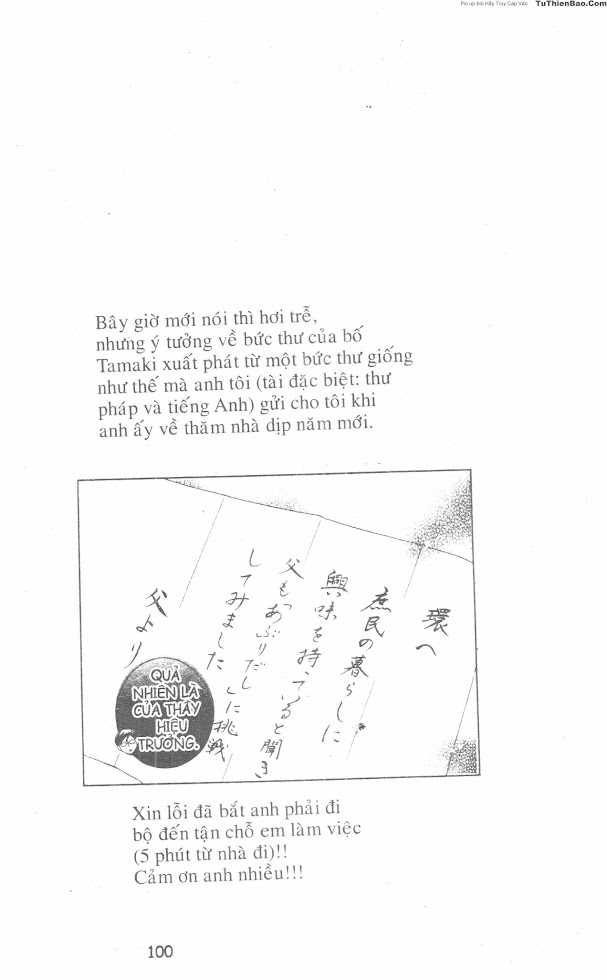 Pic up boi Hãy Truy Cap Vào TuThienBao.Com
Bây giờ mới nói thì hơi trễ,
nhưng ý tưởng về bức thư của bố
Tamaki xuất phát từ một bức thư giống
như thế mà anh tôi (tài đặc biệt: thư
pháp và tiếng Anh) gửi cho tôi khi
anh ấy về thăm nhà dịp năm mới.
環へ
庶民の暮らしに
興味を持っていると聞き
父も「あぶりだし」に挑戦
してみました
父より
QUẢ
NHIÊN LÀ
CỦA THẦY
HIỆU
TRƯỞNG.
Xin lỗi đã bắt anh phải đi
bộ đến tận chỗ em làm việc
(5 phút từ nhà đi)!!
Cảm ơn anh nhiều!!!
100